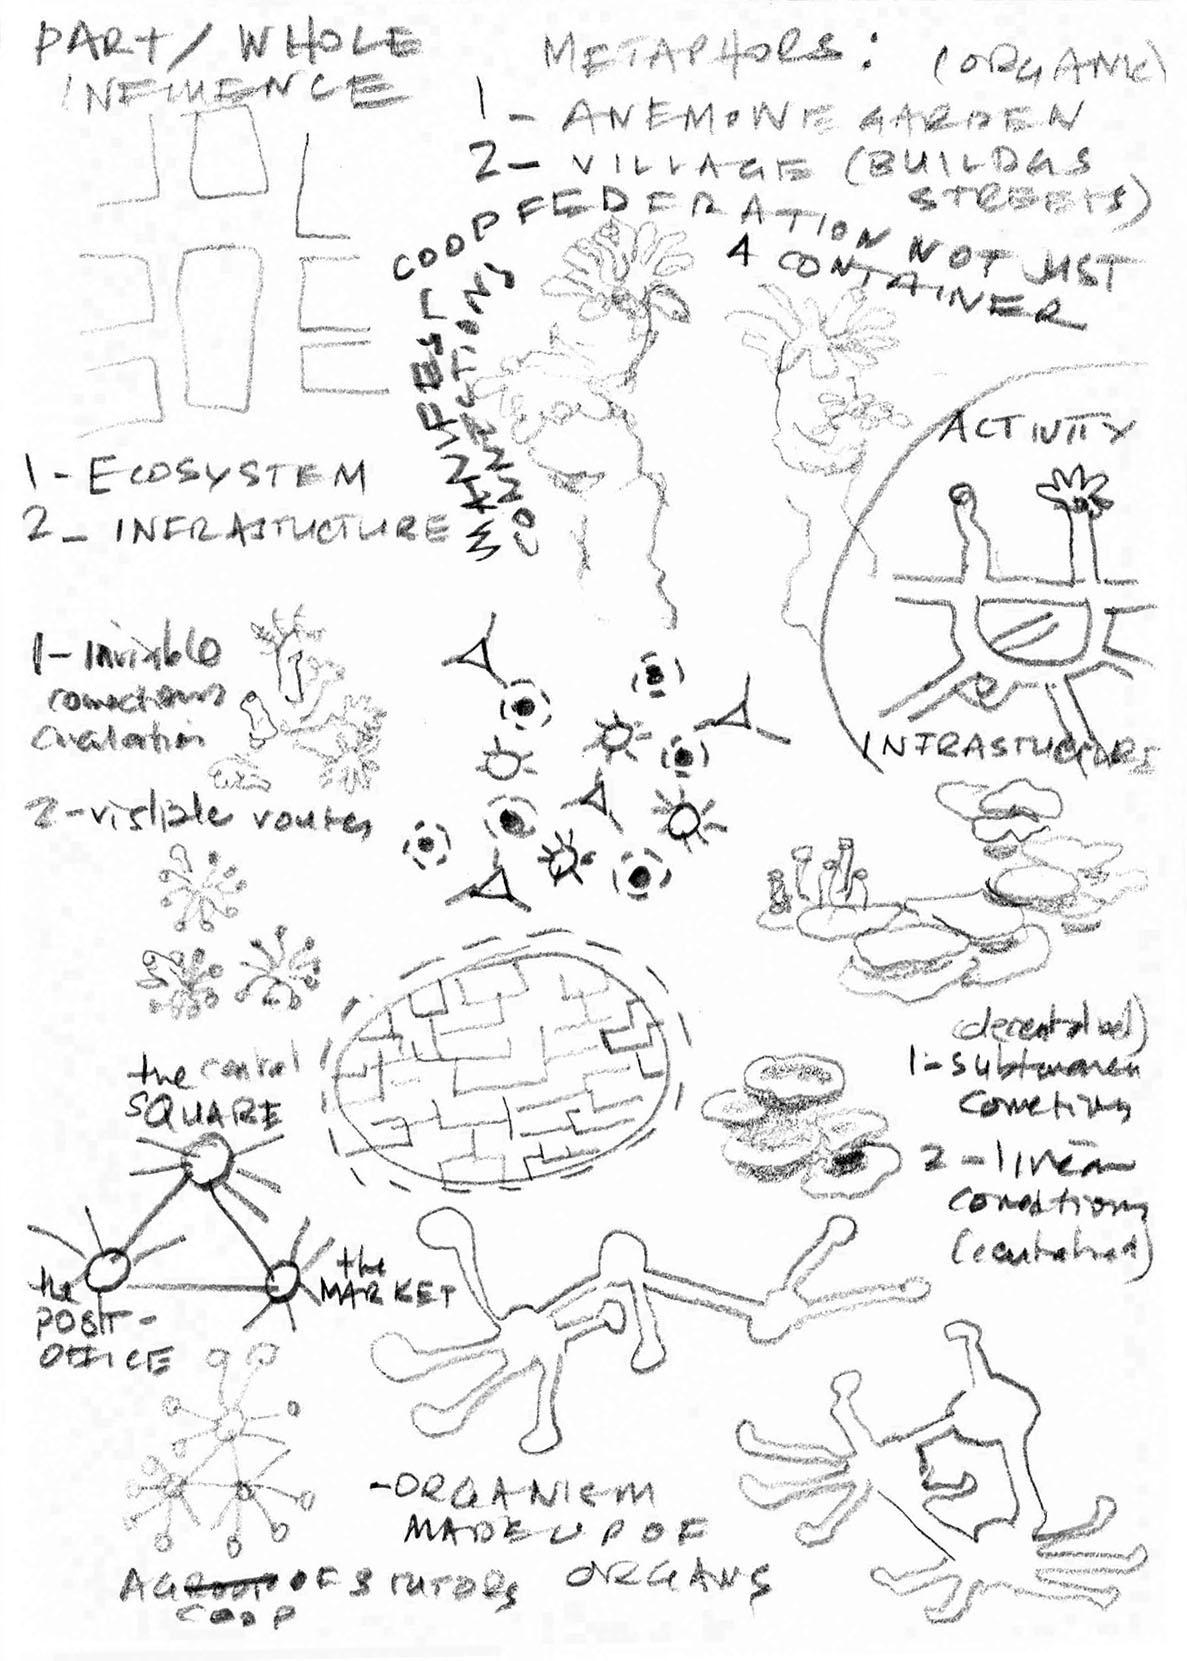 PART/WHOLE
INFLUENCE
METAPHORS: (ORGANIC)
1- ANEMONE GARDEN
2- VILLAGE (BUILDGS
STREETS)
COOP FEDERATION NOT JUST
A CONTAINER
MANIFEST
CONNECTIONS
1- ECOSYSTEM
2- INFRASTUCTURE
ACTIVITY
INFRASTUCTURE
1- invisible
connections
2- visible routes
the central
SQUARE
the
POST-
OFFICE
the
MARKET
(decentralised)
1-subterranean
2- linear
conections
(centralised)
-ORGANISM
MADE UP OF
ORGANS
A GROUP OF 3 TUTORS
COOP